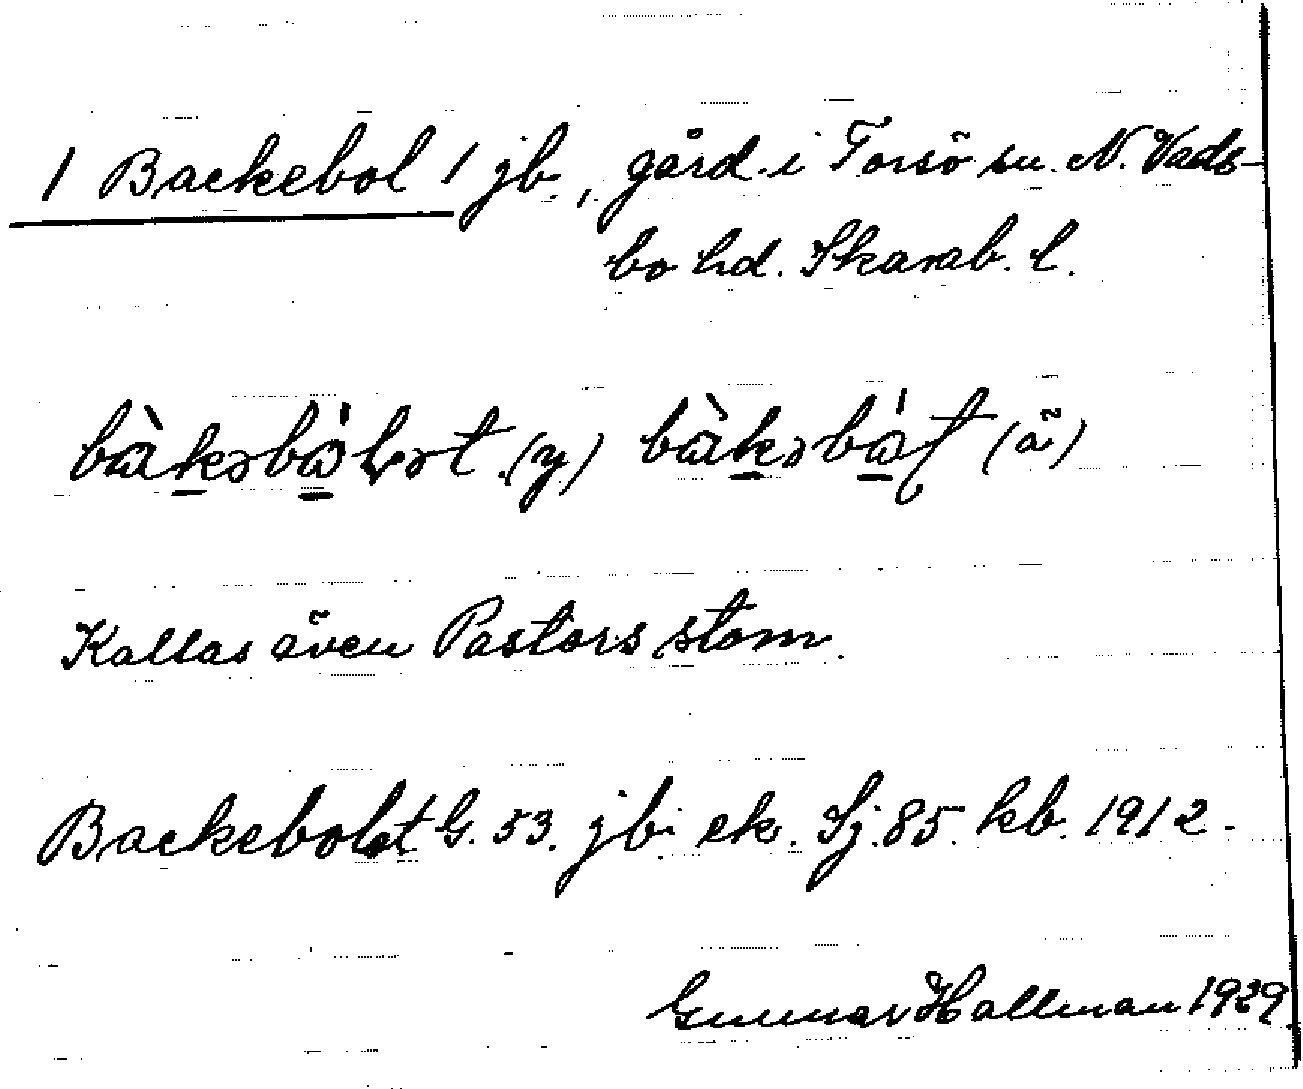 1 Backebol 1 jb., gård i Torsö sn. N. Vads-
bo hd. Skarab. l.
bàkəbǻlət (y) bàkəbǻɭt (ä)
Kallas även Pastors stom.
Backebolet G. 53. jb. ek. Sj. 85. kb. 1912.
Gunnar Hallman 1929